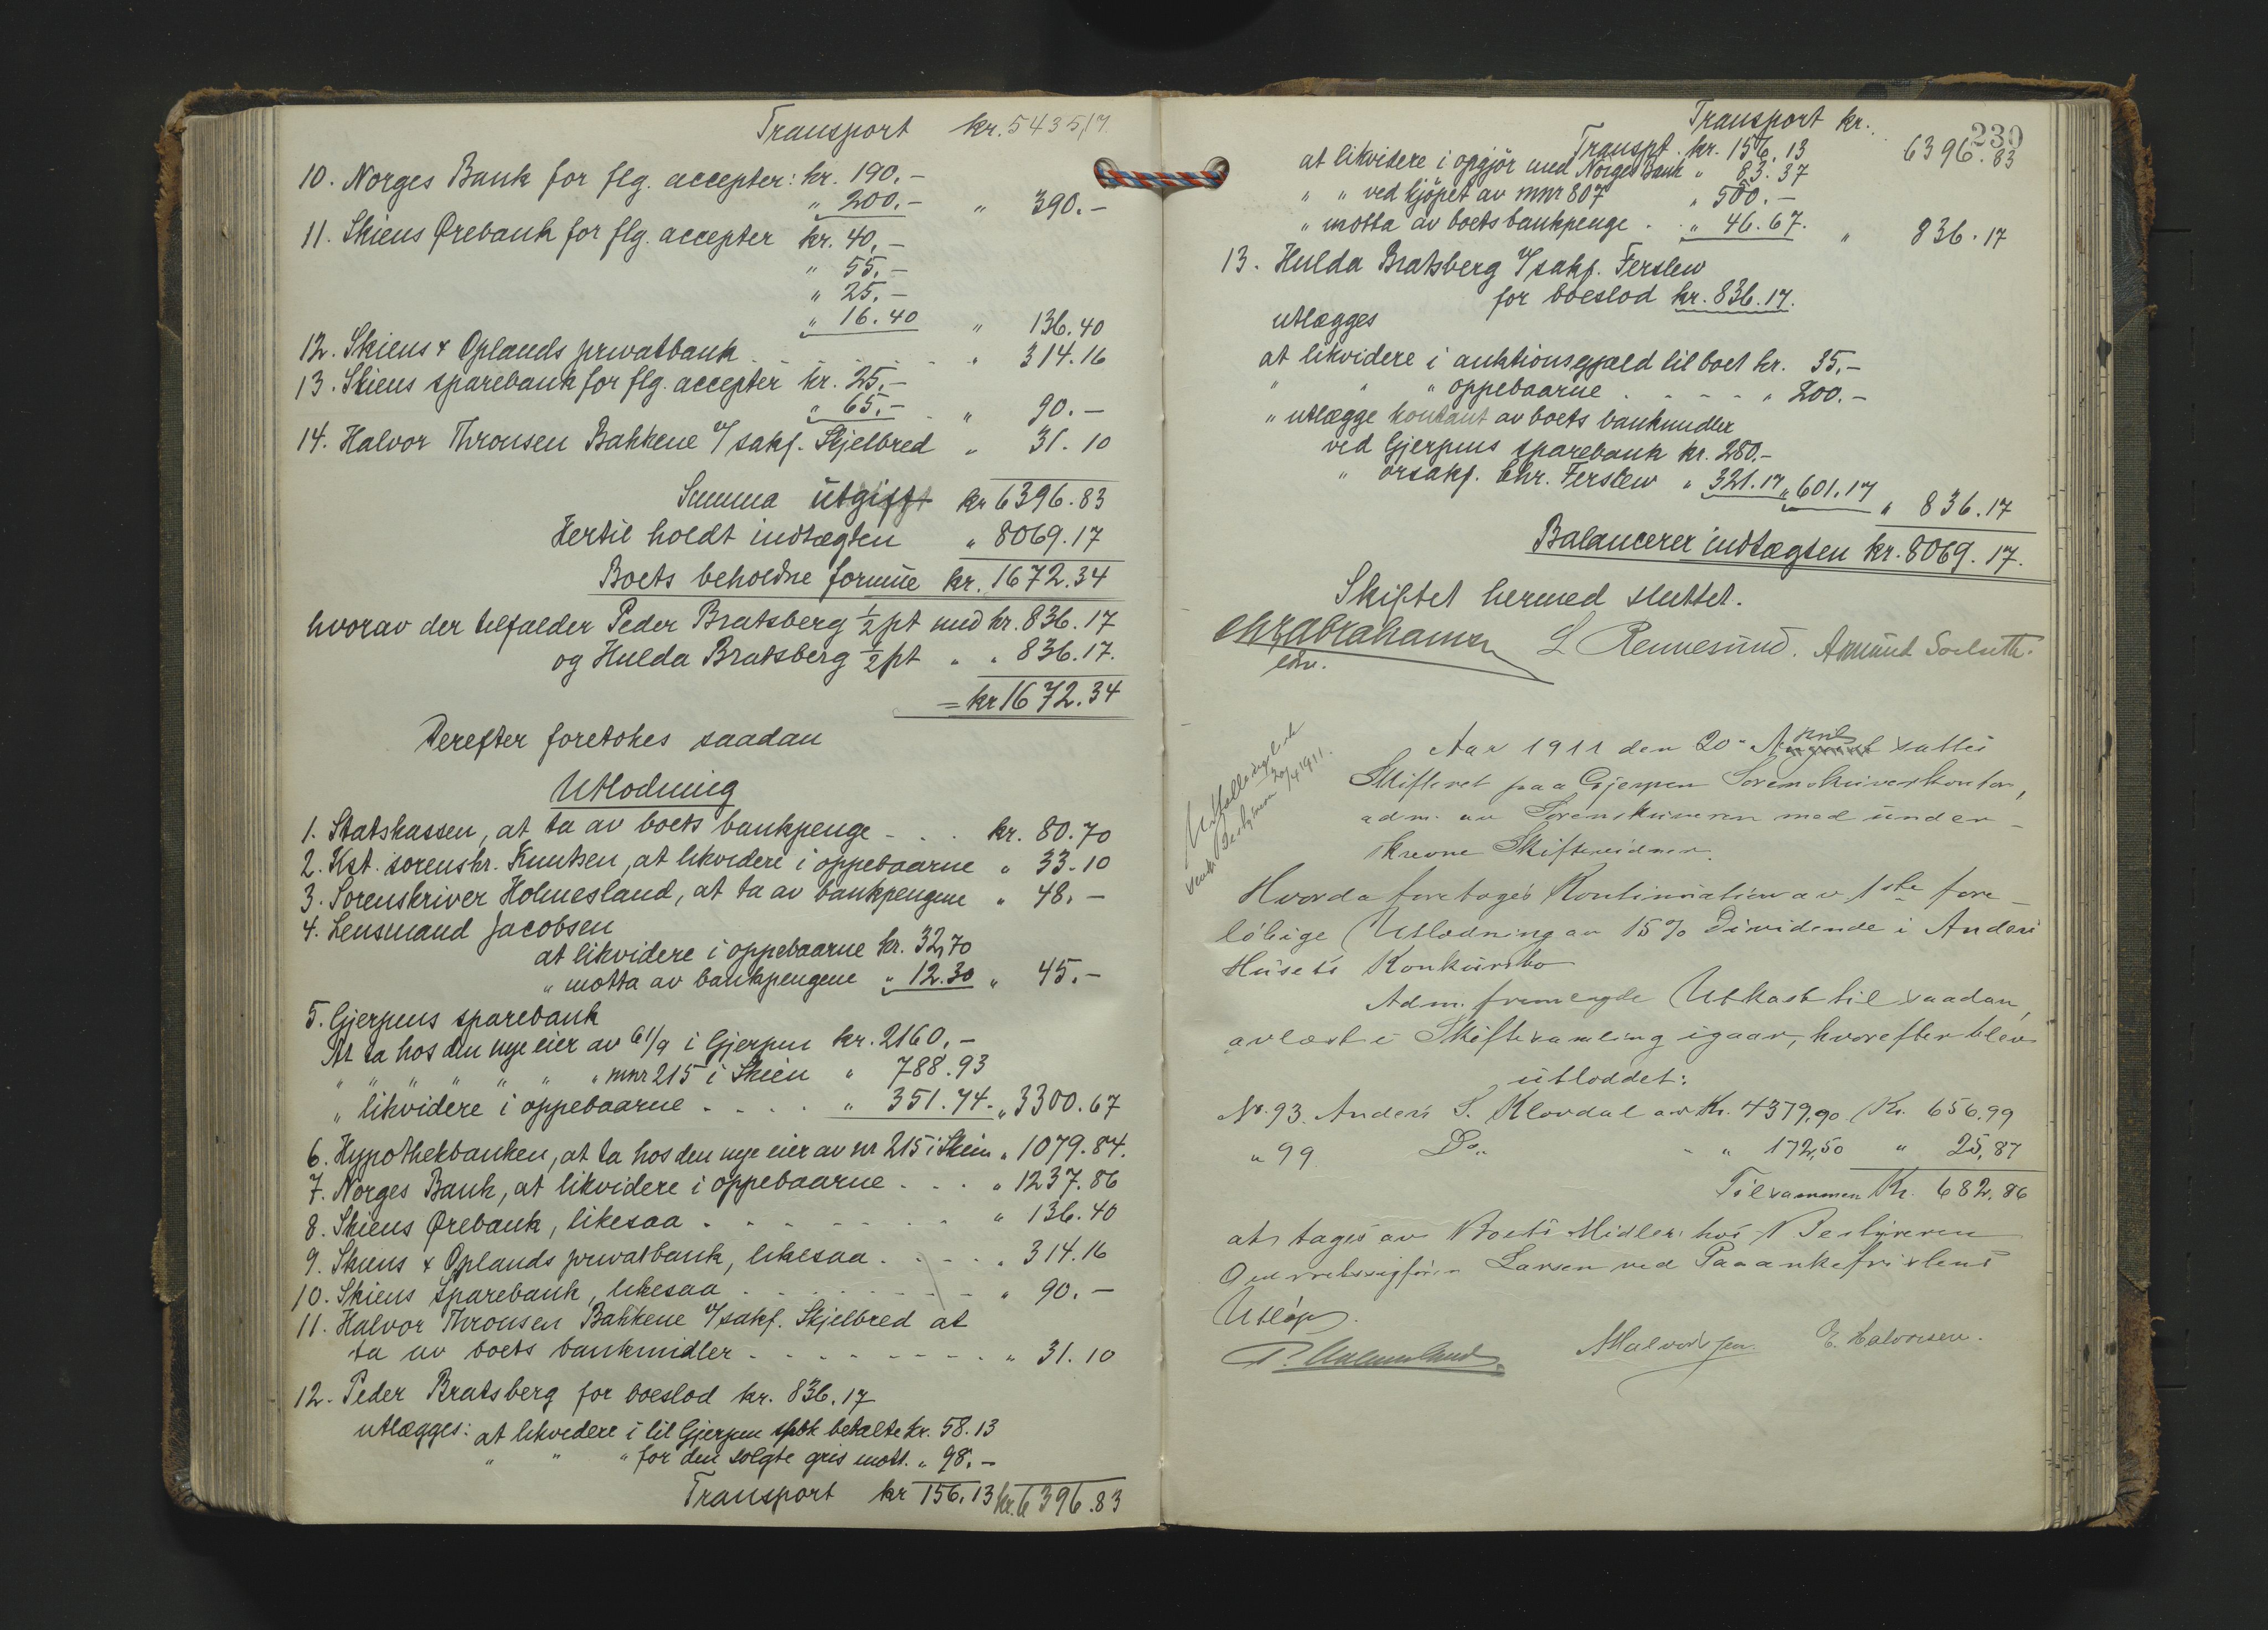 Transport kr. 5435,17.
10. Norges Bank for flg. accepter: kr. 190.-
" 200.- " 390.-
11. Skiens Ørebank for flg. accepter kr. 40.-
" 55.-
" 25.-
" 16.40 " 136.40
12. Skiens & Oplands privatbank . . . . . " 314.16
13. Skiens sparebank for flg. accepter kr. 25.-
" 65.- . " 90.-
14. Halvor Thronsen Bakkene v/ sakf. Skjelbred " 31.10
Summa utgift kr 6396.83
Hertil holdt indtægten " 8069.17
Boets beholdne formue kr. 1672.34
hvorav der tilfalder Peder Bratsberg ½ pt med kr. 836.17
og Hulda Bratsberg ½ pt " " 836.17.
= kr 1672.34
Derefter foretokes saadan
Utlodning
1. Statskassen, at ta av boets bankpenge - . . kr. 80.70
2. Kst. sorenskr. Knutsen, at likvidere i oppebaarne " 33.10
3. Sorenskriver Holmesland, at ta av bankpengene " 48.-
4. Lensmand Jacobsen
at likvidere i oppebaarne kr. 32,70
" motta av bankpengene " 12.30 " 45.-
5. Gjerpens sparebank
At ta hos den nye eier av 61/9 i Gjerpen kr. 2160.-
" " " " " " " mnr 215 i Skien " 788.93
" likvidere i oppebaarne . . . . " 351.74. " 3300.67
6. Hypothekbanken, at ta hos den nye eier av nr 215 i Skien " 1079.84.
7. Norges Bank, at likvidere i oppebaarne . . . " 1237.86
8. Skiens Ørebank, likesaa . . . . . . . " 136.40
9. Skiens & Oplands privatbank, likesaa . . . . " 314.16
10. Skiens Sparebank, likesaa . . . . . . . " 90.-
11. Halvor Thronsen Bakkene v/ sakf. Skjelbred at
ta av boets bankmidler . . . . . . . . " 31.10
12. Peder Bratsberg for boeslod kr. 836.17
utlægges: at likvidere i til Gjerpen spbk betalte kr. 58.13
" " " for den solgte gris mott. " 98.-
Transport kr 156.13 kr. 6396.83
230
Transport kr. 6396.83
Transpt. kr. 156.13
at likvidere i opgjör med Norges Bank " 83.37
" " ved kjöpet av mnr 807 " 500.-
" motta av boets bankpenge . . " 46.67. " 836.17
13. Hulda Bratsberg v/ sakf. Ferslew
for boeslod kr. 836.17.
utlægges
at likvidere i auktionsgjæld til boet kr. 35.-
" " " oppebaarne . . . . " 200.-
" utlægge kontant av boets bankmidler
ved Gjerpens sparebank kr. 280.-
" orsakf. Chr. Ferslew " 321.17 " 601.17 " 836.17
Balancerer indtægten kr. 8069.17.
Skiftet hermed sluttet.
Chr Abrahamsen
L Rennesund. Amund Solseth.
20/4 1911.
Aar 1911 den 20. April sattes
Skifteret paa Gjerpen Sorenskriverkontor,
adm. av Sorenskriveren med under-
skrevne Skiftevidner.
Hvorda foretoges Kontinuation av 1ste fore-
löbige Utlodning av 15 % Dividende i Anders
Husets Konkursbo
Adm. fremlagde Utkast til saadan,
avlæst i Skiftesamling igaar, hvorefter blev
utloddet:
No. 93. Anders S. Klovdal av Kr. 4379,90 Kr. 656.99
" 99. Do. " " 172,50 " 25,87
Tilsammen Kr. 682.86
at tages av Boets Midler hos Bestyreren
Overretssagförer Larsen ved Paaankefristens
Utlöp.
P. Holmesland
E. Halvorsen.